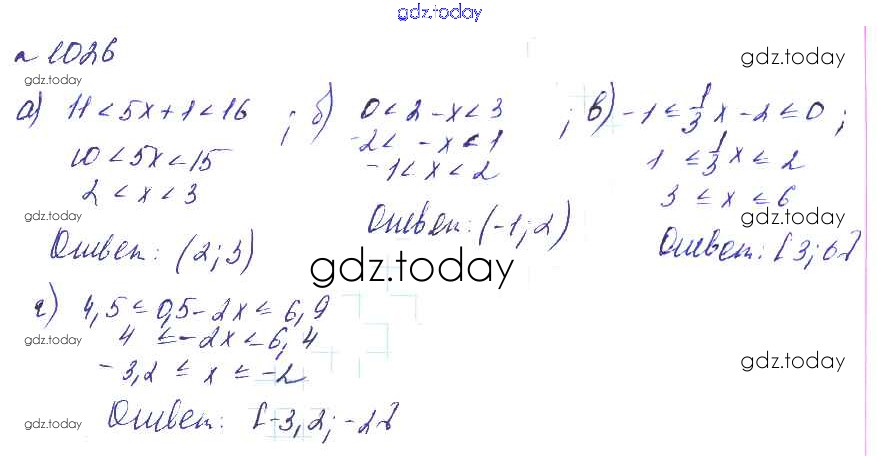 gdz.today
n 1026
gdz.today
gdz.today
а) 11 < 5x + 1 < 16 ; б) 0 < 2 - x < 3 ; в) -1 ≤ 1/3 x - 2 ≤ 0 ;
10 < 5x < 15
-2 < -x < 1
1 ≤ 1/3 x ≤ 2
2 < x < 3
-1 < x < 2
3 ≤ x ≤ 6
gdz.today
gdz.today
Ответ: (2; 3)
Ответ: (-1; 2)
Ответ: [3; 6]
gdz.today
г) 4,5 ≤ 0,5 - 2x ≤ 6,9
gdz.today
4 ≤ -2x ≤ 6,4
-3,2 ≤ x ≤ -2
gdz.today
gdz.today
Ответ: [-3,2; -2]